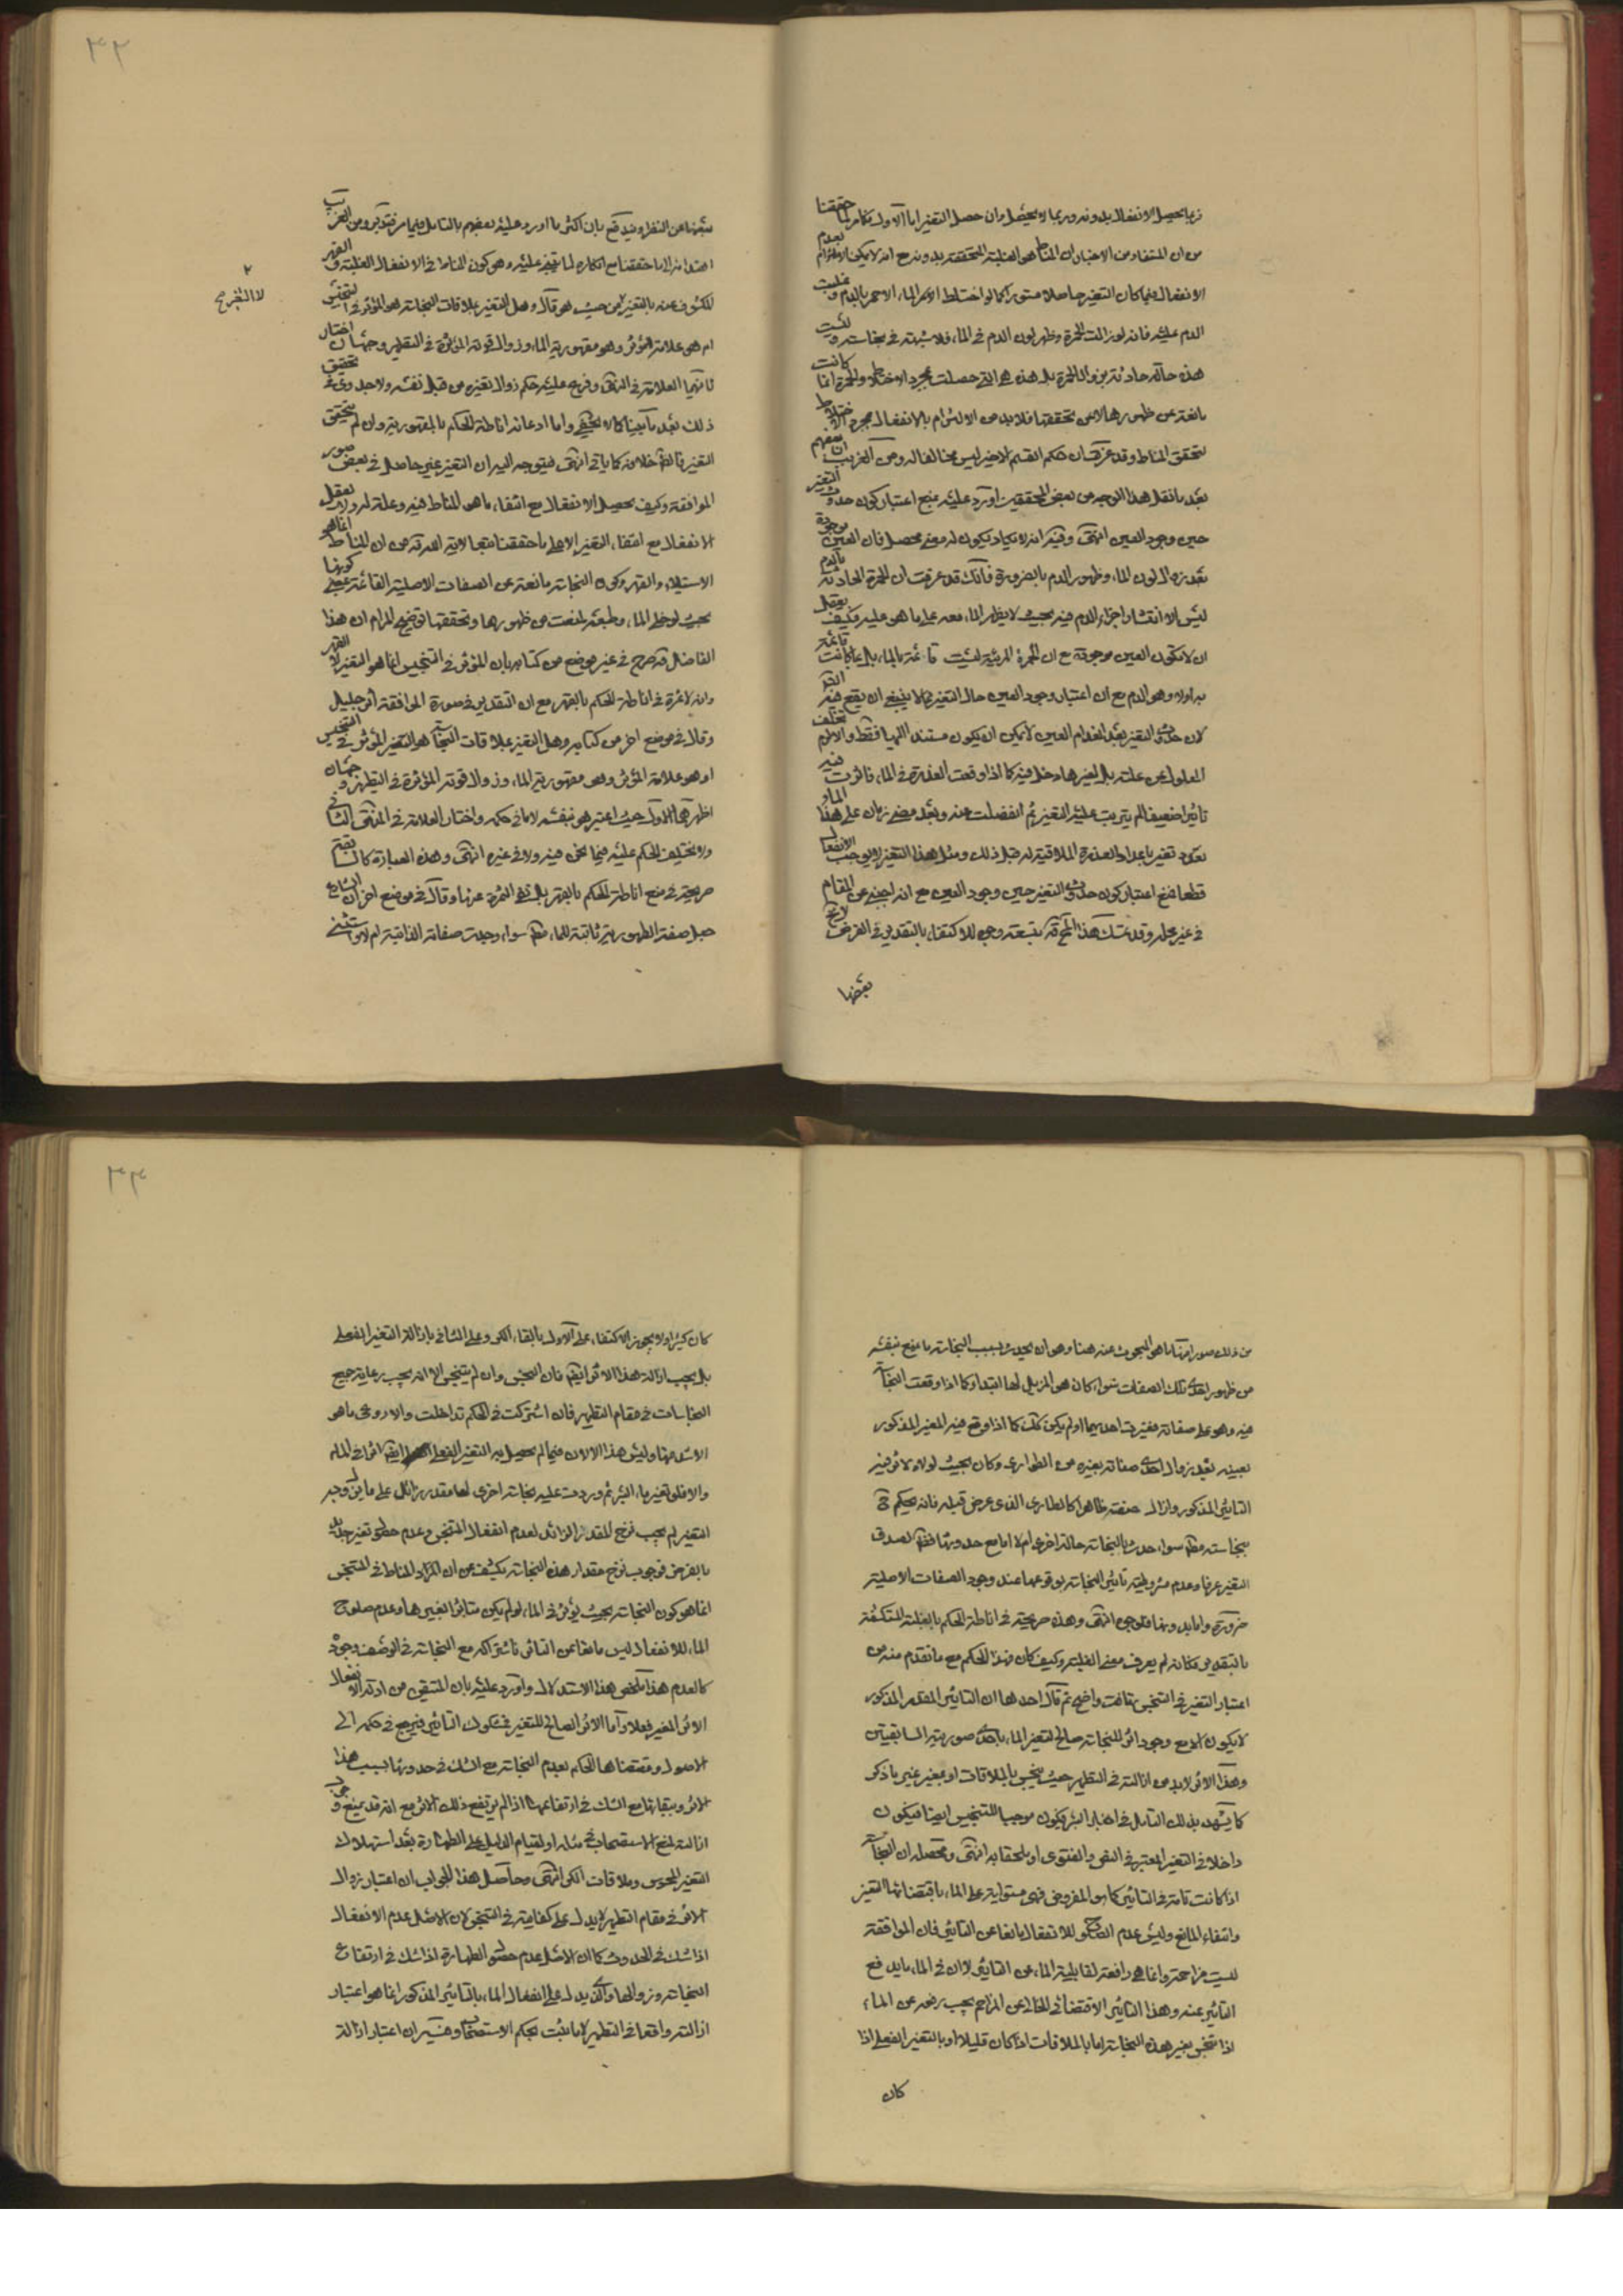 فربما يحصل الانفعال بدونه وربما لا يحصل وان حصل التغير اما الاول فكما مر لما حققنا
من ان المستفاد من الاخبار ان المناط هو الغلبة المتحققة بدونه مع انه لا يمكن الالتزام بعدم
الانفعال فيما كان التغير حاصلا مستورا كما لو اختلط الاحمر الماء الاحمر بالدم وغلبت
الدم عليه فانه لو زالت الحمرة وظهر لون الدم في الماء فلا شبهة في نجاسته وليست
هذه حالة حادثة بزوال الحمرة بل هذه هي التي حصلت بمجرد الاختلاط والحمرة انما كانت
مانعة عن ظهورها لا عن تحققها فلا بد من الالتزام بالانفعال بمجرد الاختلاط
لتحقق المناط وقد عرفت ان حكم القسم الاخير ليس مخالفا له ومن الغريب ان بعضهم
بعد ما نقل هذا الوجه من بعض المحققين اورد عليه بمنع اعتبار كون حدوث التغير
حين وجود العين انتهى وفيه انه لا يكاد يكون له معنى محصل فان العين موجودة
بعد زوال لون الماء وظهور الدم بالضرورة فانك قد عرفت ان الحمرة الحادثة بالدم
ليس الا انتشار اجزاء الدم فيه بحيث لا يظهر الماء معه على ما هو عليه فكيف يعقل
ان لا يكون العين موجودة مع ان الحمرة المرئية ليست قائمة بالماء بل بما كانت قائمة
به اولا وهو الدم مع ان اعتبار وجود العين حال التغير مما لا ينبغي ان يقع فيه
لان حدوث التغير بعد انعدام العين لا يمكن ان يكون مستندا اليها فقط والا لزم تخلف
المعلول عن علته بل لغيرها دخل فيه كما اذا وقعت العذرة في الماء فاثرت فيه
تاثيرا ضعيفا لم يترتب عليه التغير ثم انفصلت عنه وبعد مضى زمان على هذا الماء
تغير باعداد العذرة الملاقية له قبل ذلك ومثل هذا التغير لا يوجب الانفعال
قطعا فمنع اعتبار كون حدوث التغير حين وجود العين مع انه اجنبي عن المقام
في غير محله وقد تمسك هذا المحقق بوجه للاكتفاء بالتقدير في الفرض لا يخ
بعضها
٣٢
بعضها عن النظر ويندفع بان اكثر ما اورد عليه بعضهم بالتامل فيما مر فتدبر ومن الغريب
ايضا انه لما حققنا مع انكاره لما يتفرع عليه وهو كون المناط في الانفعال الغلبة والقهر
المكشوف عنه بالتغير من حيث هو قال وهل التغير بملاقات النجاسة هو المؤثر في التنجيس
ام هو علامة المؤثر وهو مقهورية الماء وزوال قوته المؤثرة في التطهير وجهان اختار
ثانيهما العلامة في المنتهى وفرع عليه حكم زوال تغيره من قبل نفسه ولا جدوى في تحقق
ذلك بعد ما بينا كما لا يخفى واما ادعائه اناطة الحكم بالمقهورية وان لم يتحقق
التغير فالظاهر خلافه كما ياتي انتهى فيتوجه اليه ان التغير غير حاصل في بعض صور
الموافقة وكيف يحصل الانفعال مع انتفاء ما هو المناط فيه وعلة له ولا يعقل
الانفعال مع انتفاء التغير الا على ما حققنا تبعا لاية الله قده من ان المناط انما هو
الاستيلاء والقهر وكون النجاسة مانعة عن الصفات الاصلية القائمة بمحل كونها
بحيث لو خلى الماء وطبعه لمنعت من ظهورها وتحققها توضيح المرام ان هذا
الفاضل قد صرح في غير موضع من كتابه بان المؤثر في التنجيس انما هو التغير لا القهر
وانه لا ثمرة في اناطة الحكم بالقهر مع ان التقدير في صورة الموافقة اثر جليل
وقال في موضع اخر من كتابه وهل التغير بملاقات النجاسة هو التغير المؤثر في التنجيس
او هو علامة المؤثر وهو مقهورية الماء وزوال قوته المؤثرة في التطهير وجهان
اظهرهما الاول حيث اعتبر هو بنفسه لاماني حكمه واختار العلامة في المنتهى الثاني
ولا يختلف الحكم عليه فيما نحن فيه ولا في غيره انتهى وهذه العبارة كالسابقة
صريحة في منع اناطة الحكم بالقهر بل نفي الثمرة عنها وقال في موضع اخر ان الشارع
جعل صفة الطهورية ثابتة للماء مطلقا سواء وجدت صفاته الذاتية ام لا واستثنى
٢
لا التفريع
من ذلك صورا منها ما هو المبحوث عنه هنا وهو ان يحدث بسبب النجاسة ما يمنع بنفسه
من ظهور احدى تلك الصفات سواء كان هو المزيل لها ابتداء كما اذا وقعت النجاسة
فيه وهو على صفاته فغيرت احديهما او لم يكن كذلك كما اذا وقع فيه المغير المذكور
بعينه بعد زوال احدى صفاته بغيره من الطوارى وكان بحيث لولاه لاثر فيه
التاثير المذكور وازال صفته ظاهرا كالطارى الذى عرض قبله فانه يحكم ح
بنجاسته مطلقا سواء حدث بالنجاسة حالة اخرى ام لا اما مع حدوثها فظاهر لصدق
التغير عرفا وعدم مشروطية تاثير النجاسة بوقوعها عند وجود الصفات الاصلية
ضرورة واما بدونها فلوجوه انتهى وهذه صريحة في اناطة الحكم بالغلبة المنكشفة
بالتقدير فكانه لم يعرف معنى الغلبة وكيف كان فهذا الحكم مع ما تقدم منه من
اعتبار التغير في التنجس تهافت واضح ثم قال احدها ان التاثير المقدر المذكور
لا يكون الا مع وجود اثر للنجاسة صالح لتغير الماء باحدى صورتيه السابقتين
وهذا الاثر لا بد من ازالته في التطهير حيث ينجس بالملاقات او بمغير غير ما ذكر
كما يشهد بذلك التامل في اخبار البئر فيكون موجبا للتنجيس ايضا فيكون
داخلا في التغير المعتبر في النص والفتوى او ملحقا به انتهى ومحصله ان النجاسة
اذا كانت تامة في التاثير كما هو المفروض فهى مستولية على الماء باقتضائها التغير
وانتفاء المانع وليس عدم الصلوح للانفعال مانعا عن التاثير فان الموافقة
ليست مزاحمة وانما هى رافعة لقابلية الماء عن التاثير لا ان في الماء ما يدفع
التاثير عنه وهذا التاثير الاقتضائى الخالى عن المزاحم يجب رفعه عن الماء
اذا تنجس بغير هذه النجاسة اما بالملاقات اذا كان قليلا او بالتغير الفعلى اذا
كان
٣٣
كان كثيرا ولا يجوز الاكتفاء على الاول بالقاء الكر وعلى الثانى بازالة التغير الفعلى
بل يجب ازالة هذا الاثر ايضا فان النجس وان لم يتنجس الا انه يجب رعاية جميع
النجاسات في مقام التطهير فان اشتركت في الحكم تداخلت والا روعى ما هو
الاشد منها وليس هذا الا لان فيما لم يحصل به التغير الفعلى ايضا اثرا في الماء
والا فلو تغير ماء البئر ثم وردت عليه نجاسة اخرى لها مقدر زائد على ما يزول به
التغير لم يجب نزح المقدار الزائد لعدم انفعال المتنجس وعدم حصول تغير جديد
بالفرض فوجوب نزح مقدار هذه النجاسة يكشف عن ان المراد المناط في التنجس
انما هو كون النجاسة بحيث يؤثر في الماء لو لم يكن متاثرا بغيرها وعدم صلوح
الماء للانفعال ليس مانعا عن التاثير فاشتراكه مع النجاسة في الوصف وجوده
كالعدم هذا ملخص هذا الاستدلال واورد عليه بان المتيقن من ادلة الانفعال
الاثر المغير فعلا واما الاثر الصالح للتغير فمشكوك التاثير فيرجع في حكمه الى
الاصول ومقتضاها الحكم بعدم النجاسة مع الشك في حدوثها بسبب هذا
الاثر وببقائها مع الشك في ارتفاعها اذا لم يرتفع ذلك الاثر مع انه قد يمنع وجوب
ازالته لمنع الاستصحاب في مثله او لقيام الدليل على الطهارة بعد استهلاك
التغير المحسوس وملاقات الكر انتهى وحاصل هذا الجواب ان اعتبار زوال
الاثر في مقام التطهير لا يدل على كفايته في التنجس لان الاصل عدم الانفعال
اذا شك في الحدوث كما ان الاصل عدم حصول الطهارة اذا شك في ارتفاع
النجاسة وزوالها والذى يدل على انفعال الماء بالتاثير المذكور انما هو اعتبار
ازالته واقعا في التطهير لا ما يثبت بحكم الاستصحاب وفيه ان اعتبار ازالة